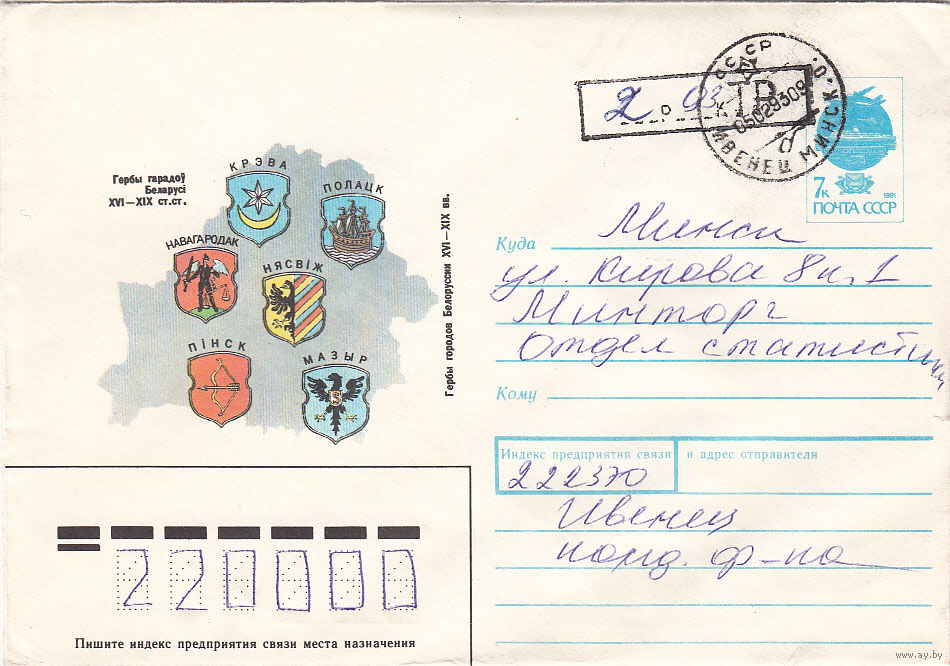 Гербы гарадоў
Беларусі
XVI—XIX ст.ст.
КРЭВА
ПОЛАЦК
НАВАГАРОДАК
НЯСВІЖ
ПІНСК
МАЗЫР
Гербы городов Белоруссии XVI—XIX вв.
2 0 93
СССР
ТР
05029309
ИВЕНЕЦ МИНСК. О.
7к
1991
ПОЧТА СССР
Куда Минск
ул. Кирова 8 к. 1
Минторг
Отдел статистики
Кому
Индекс предприятия связи и адрес отправителя
222370
Ивенец
конд. ф-ка
220000
Пишите индекс предприятия связи места назначения
www.ay.by